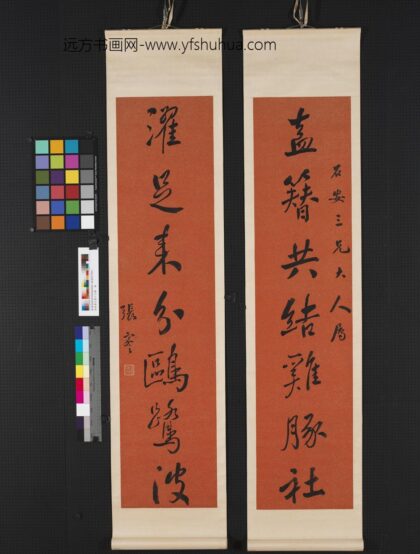 远方书画网-www.yfshuhua.com
盍簪共結雞豚社
安三兄大人属
濯足来分鷗鷺波
張謇